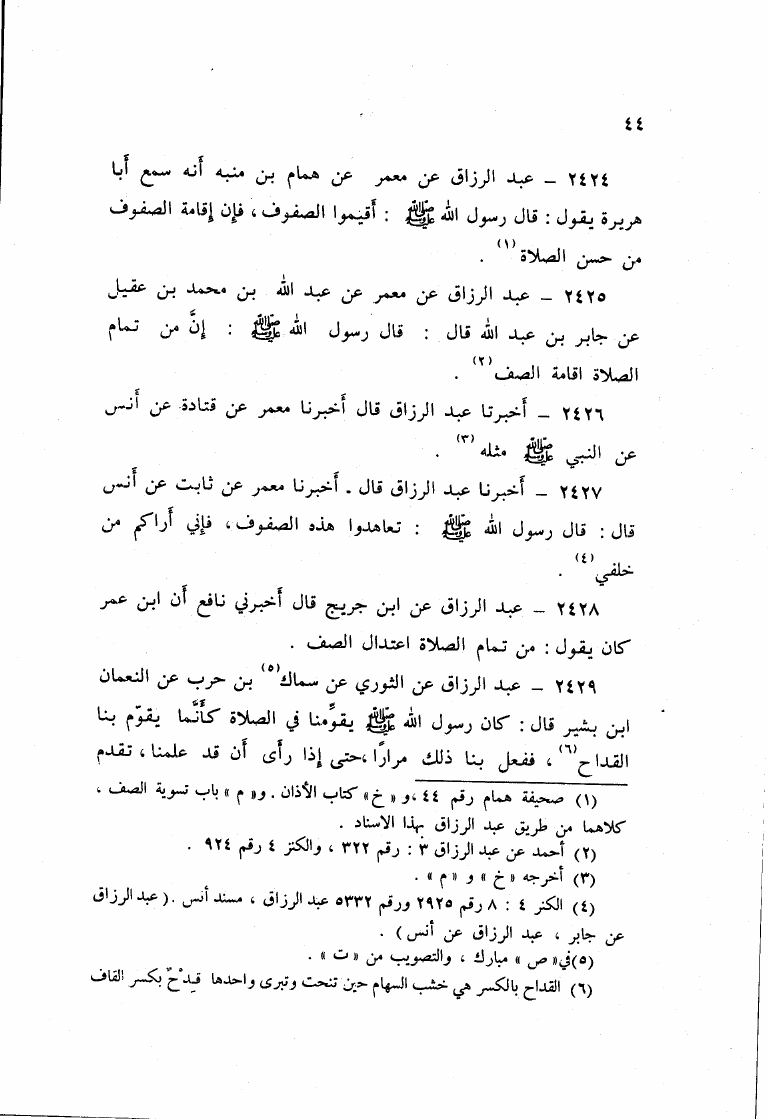 ٤٤
٢٤٢٤ – عبد الرزاق عن معمر عن همام بن منبه أنه سمع أبا
هريرة يقول : قال رسول الله ﷺ : أقيموا الصفوف ، فإن إقامة الصفوف
من حسن الصلاة (١) .
٢٤٢٥ – عبد الرزاق عن معمر عن عبد الله بن محمد بن عقيل
عن جابر بن عبد الله قال : قال رسول الله ﷺ : إنَّ من تمام
الصلاة اقامة الصف (٢) .
٢٤٢٦ – أخبرتا عبد الرزاق قال أخبرنا معمر عن قتادة عن أنس
عن النبي ﷺ مثله (٣) .
٢٤٢٧ – أخبرنا عبد الرزاق قال . أخبرنا معمر عن ثابت عن أنس
قال : قال رسول الله ﷺ : تعاهدوا هذه الصفوف ، فإني أراكم من
خلفي (٤) .
٢٤٢٨ – عبد الرزاق عن ابن جريج قال أخبرني نافع أن ابن عمر
كان يقول : من تمام الصلاة اعتدال الصف .
٢٤٢٩ – عبد الرزاق عن الثوري عن سماك (٥) بن حرب عن النعمان
ابن بشير قال : كان رسول الله ﷺ يقوِّمنا في الصلاة كأنَّما يقوّم بنا
القداح (٦) ، ففعل بنا ذلك مراراً ،حتى إذا رأى أن قد علمنا ، تقدم
(١) صحيفة همام رقم ٤٤ ،و « خ » كتاب الأذان . و« م » باب تسوية الصف ،
كلاهما من طريق عبد الرزاق بهذا الاسناد .
(٢) أحمد عن عبد الرزاق ٣ : رقم ٣٢٢ ، والكنز ٤ رقم ٩٢٤ .
(٣) أخرجه « خ » و « م » .
(٤) الكنز ٤ : ٨ رقم ٢٩٢٥ ورقم ٥٣٣٢ عبد الرزاق ، مسند أنس .( عبد الرزاق
عن جابر ، عبد الرزاق عن أنس ) .
(٥)في« ص » مبارك ، والتصويب من « ت » .
(٦) القداح بالكسر هي خشب السهام حين تنحت وتبرى واحدها قِدْحٌ بكسر القاف